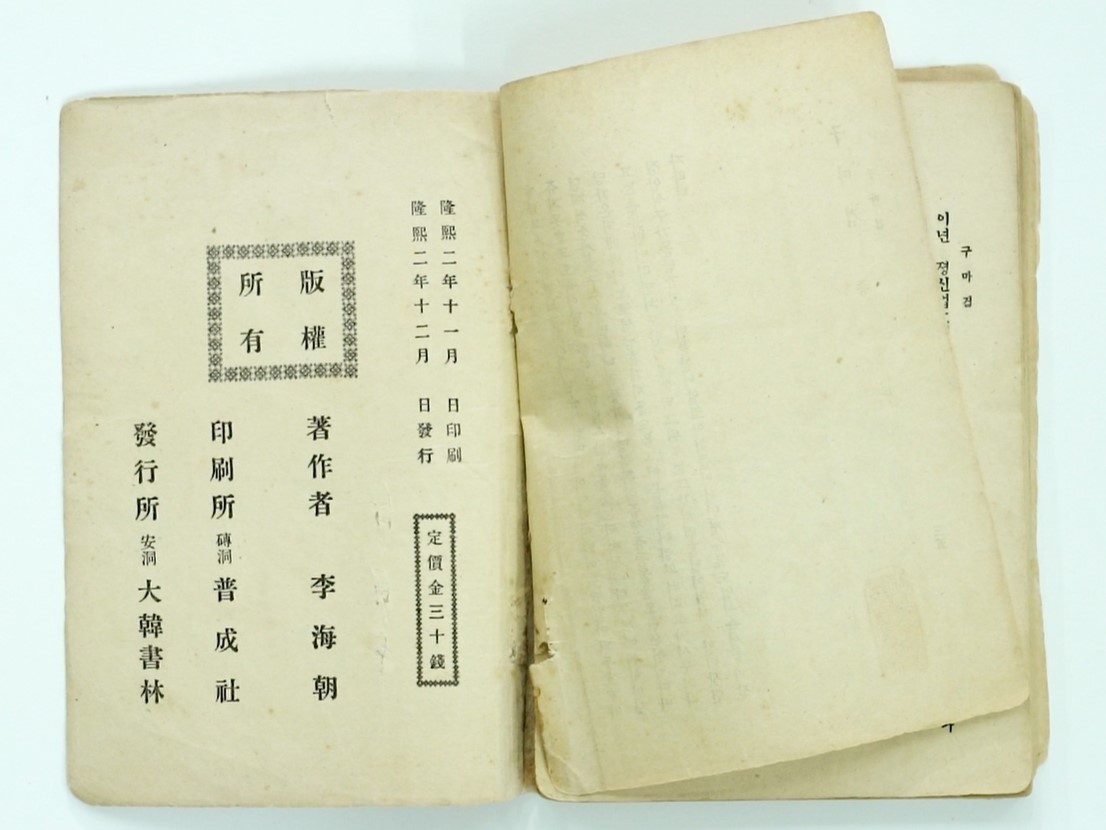 구마검
이년 졍신업
隆熙二年十一月 日印刷
隆熙二年十二月 日發行
定價金三十錢
版權
所有
著作者 李海朝
印刷所 磚洞 普成社
發行所 安洞 大韓書林